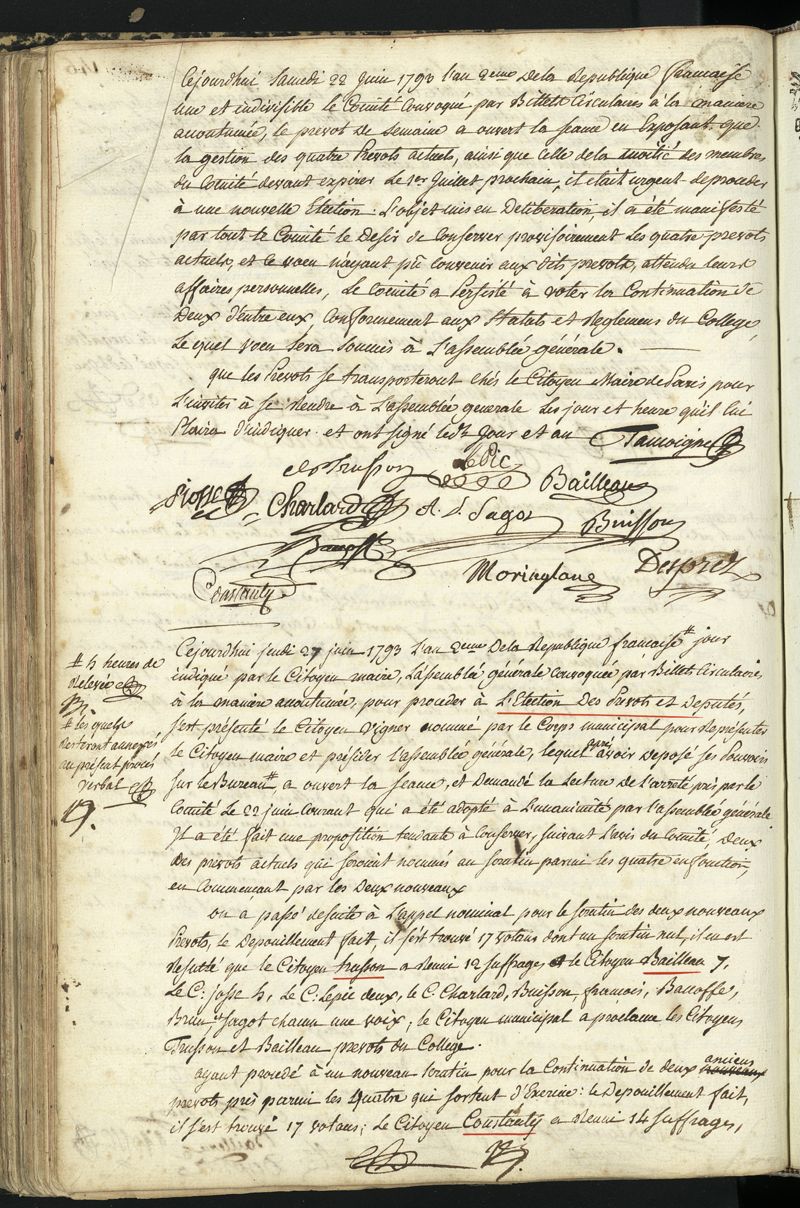 Cejourdhui Samedi 22 Juin 1793 l'an 2eme Dela Republique francaise
Une et indivisible le Comité Convoqué par Billets Circulaires à la maniere
accoutumée, le prevot De Semaine a ouvert la seance en Exposant que
la gestion des quatre Prevots actuels, ainsi que Celle dela moitié des membres
du Comité devant expirer le 1er Juillet prochain, il etait urgent de proceder
à une nouvelle Election. L'objet mis en Deliberation il a été manifesté
par tout le Comité le Desir de Conserver provisoirement les quatre prevots
actuels, et ce voeu n'ayant pû Convenir aux dits prevots, attendu leurs
affaires personnelles, le Comité a Persisté à voter la Continuation de
Deux d'entre eux Conformement aux Statuts et Reglemens du College,
Le quel voeu Sera Soumis à L'assemblée générale.
que les Prevots se transporteront chés le Citoyen Maire de Paris pour
L'inviter à se Rendre à L'assemblée generale les jour et heure qu'il lui
Plaira d'indiquer et ont signé led. Jour et an Tassoigne
Trusson LePic Bailleau
Josse Charlard A. L. Sagot Buisson
Moringlane Desprez
Constanty
Cejourdhui jeudi 27 juin 1793 L'an 2eme Dela Republique francaise # jour
indiqué par le Citoyen maire, L'assemblée générale Convoquée par Billet Circulaire,
à la maniere accoutumée, pour proceder à L'Election Des Prevots et Deputés,
s'est présenté le Citoyen Vigner nommé par le Corps municipal pour Representer
le Citoyen maire et présider l'assemblée générale, lequel après avoir deposé ses Pouvoirs
sur le Bureau #, a ouvert la seance, et Demandé la Lecture de L'arreté pris par le
Comité Le 22 juin Courant qui a été adopté à L'unanimité par l'assemblée générale
Il a été fait une proposition tendante à Conserver, suivant L'avis du Comité, Deux
des prevots actuels qui seroient nommés au scrutin parmi les quatre en fonction,
en Commencant par les Deux nouveaux
on a passé desuite à L'appel nominal pour le scrutin des deux nouveaux
Prevots, le Depouillement fait, il s'est trouvé 17 votans dont un scrutin nul, il en est
Resulté que le Citoyen trusson a Reuni 12 suffrages et le Citoyen Bailleau 7,
Le C: josse 5, Le C: Lepic deux, le C: Charlard, Buisson, francois, Bacoffe,
Brun et Sagot chacun une voix; le Citoyen municipal a proclamé les Citoyens
Trusson et Bailleau prevots du College.
ayant procedé à un nouveau scrutin pour la Continuation de deux anciens nouveaux
prevots pris parmi les quatre qui sortent d'Exercice: le Depouillement fait,
il s'est trouvé 17 votans; le Citoyen Constanty a Reuni 14 Suffrages,
# 5 heures de
Relevée
# les quels
Resteront annexés
au présent procès
verbal